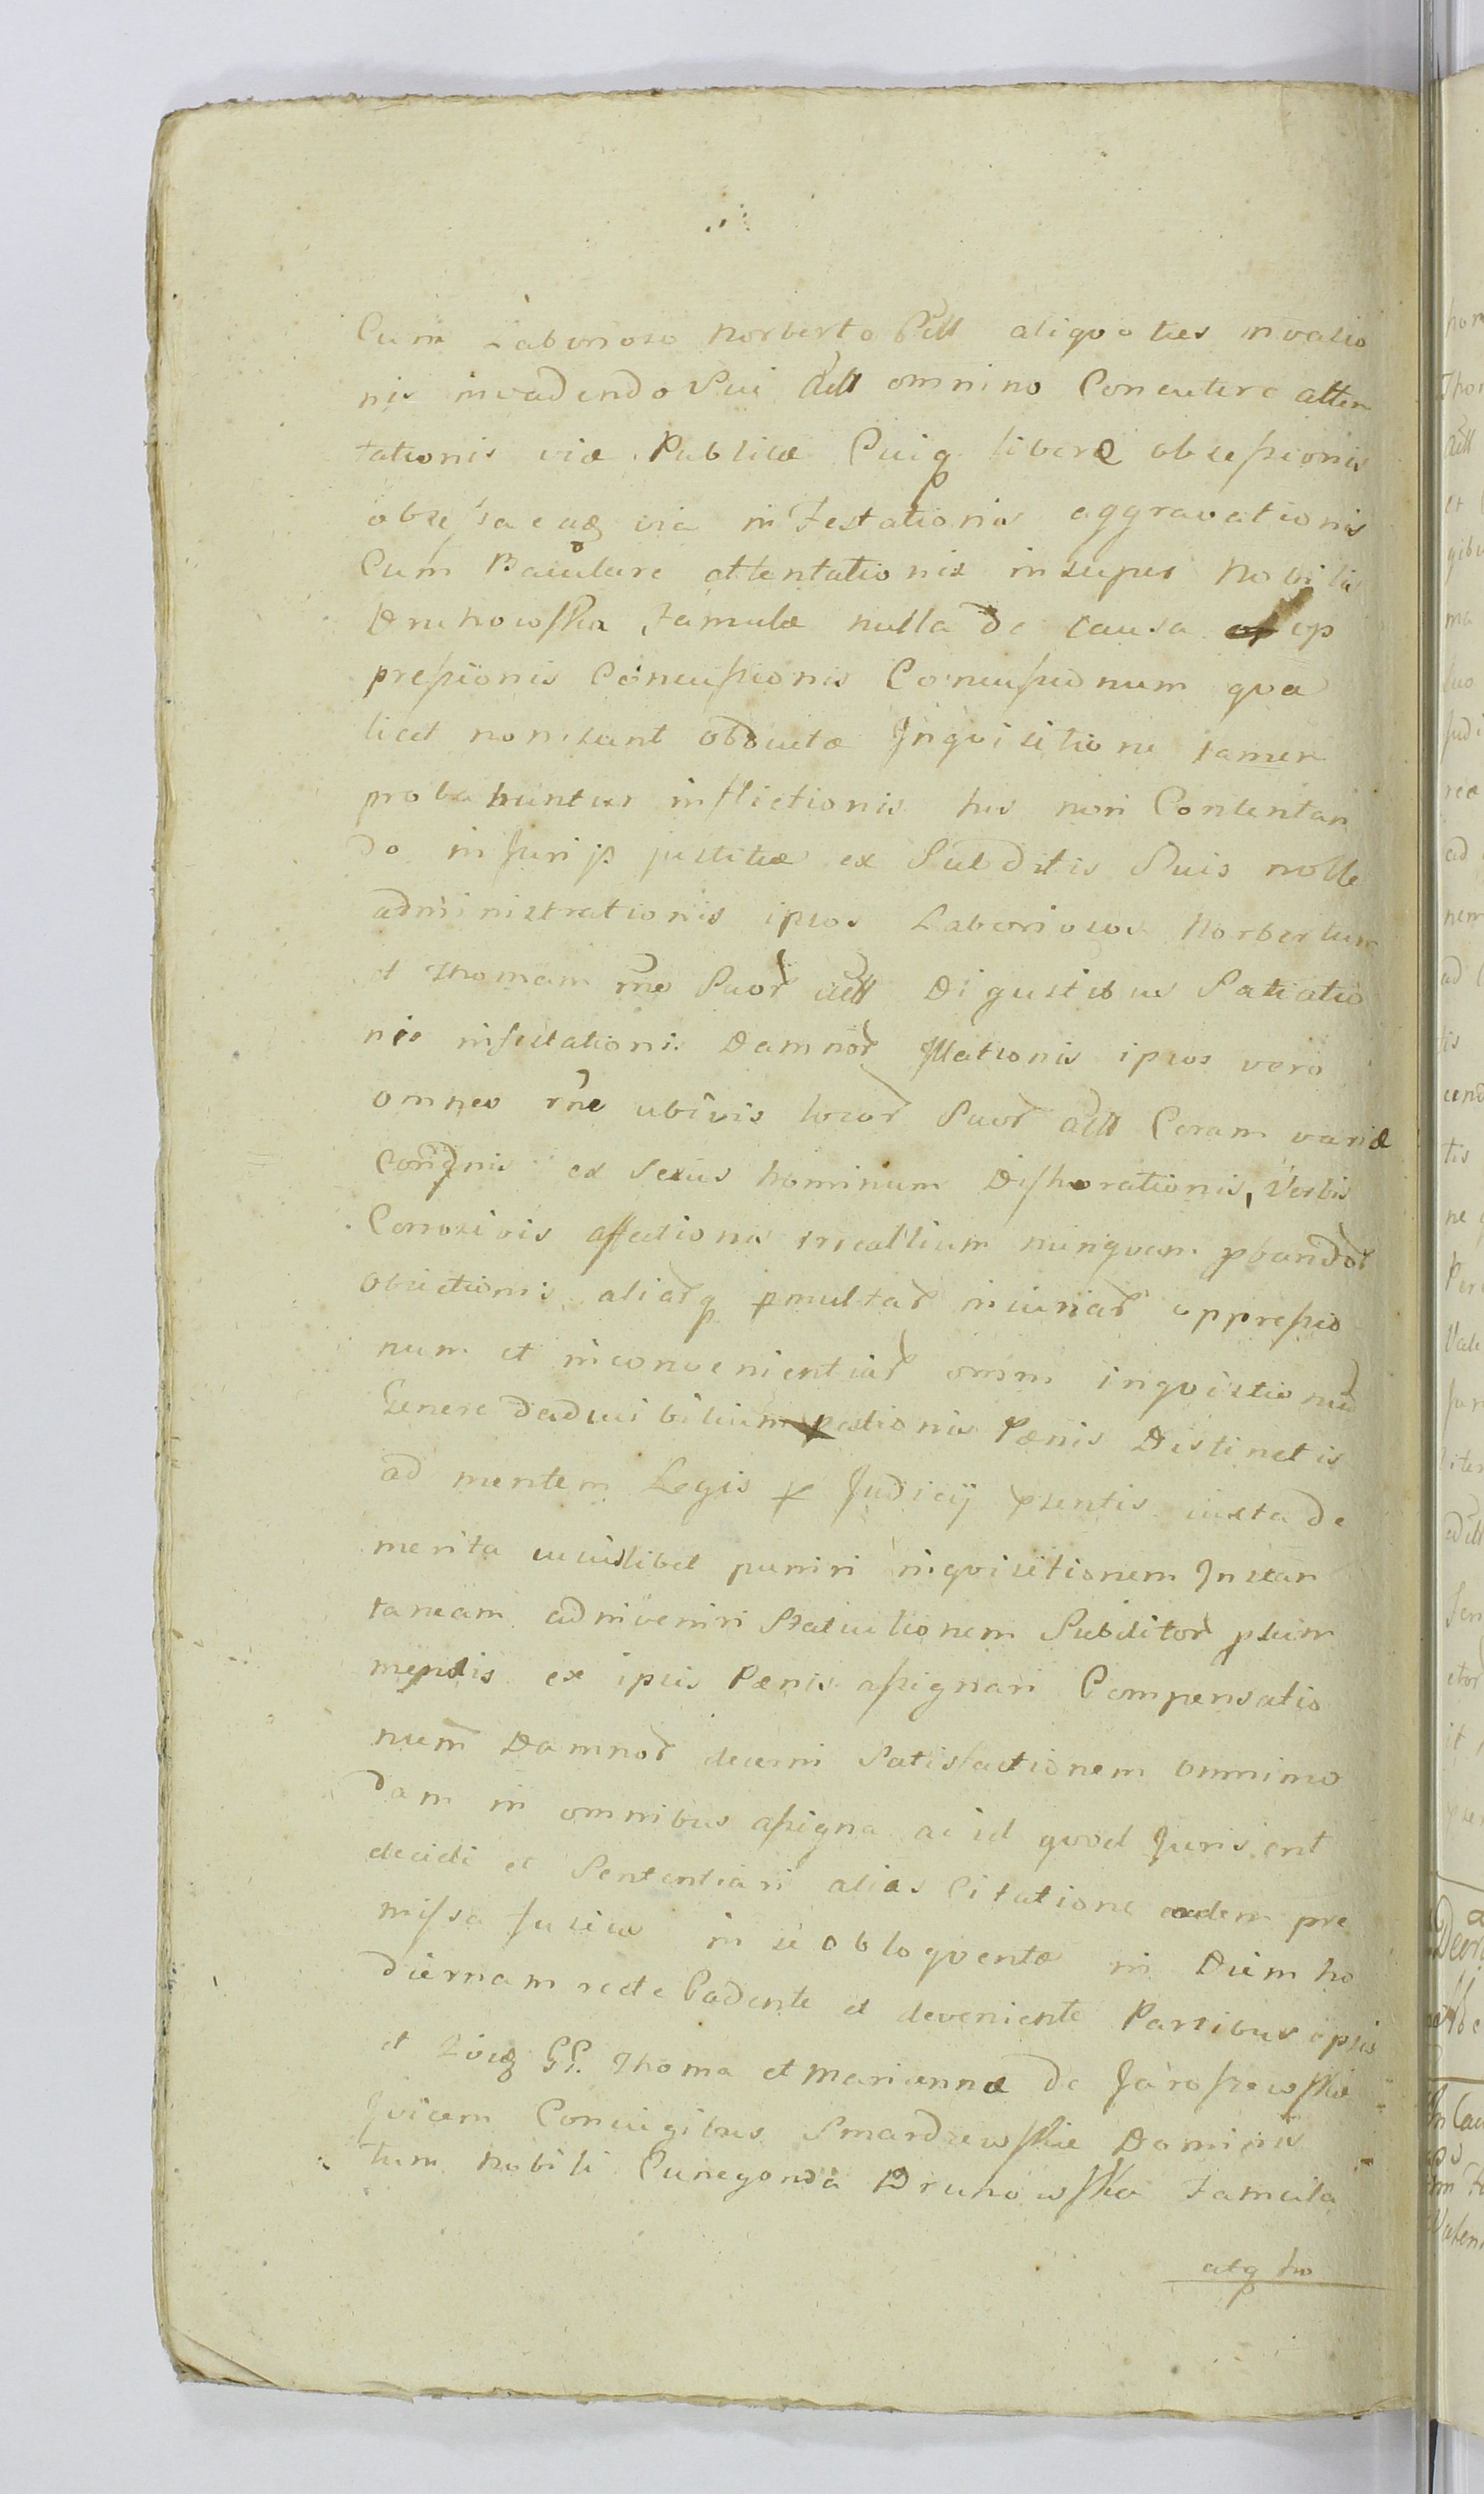 Cum Laborioso Norberto Aẽll aliquoties invasio
nis invadendo Sui Aẽll omnino Concutere atten
tationis viæ Publicæ Cuiq liberæ obsessionis
obsessaeq via infestationis aggravationis
Cum Baculare attentationis insuper Nobilis
Drunowska famulæ nulla de causa op
pressionis Concussionis Concussionum qua
licet non sunt obductæ Inquisitione tamen
probabuntur inflictionis his non Contentan
do injurijs justitiæ ex Subditis Suis nolle
administrationis ipsos Laboriosos Norbertum
et Thomam rñe Suor Aẽll Digustibus Satiatio
nis insultationis Damnor Illationis ipsos vero
omnes rñe ubivis locor Suor Aẽll Coram variæ
Condñis et sexus hominum Dishorationis, Verbis
Corrosivis affectionis nunquam pbandor
obiectionis aliarq pmultar iniuriar oppressio
num et inconvenientiar omni inquisitionis
Genere deducibilium pationis Pænis Distinctis
ad mentem Legis p Judicij psentis iuxta de
merita cuiuslibet puniri inquisitionem Instan
taneam adinveniri Statuitionem Subditor psium
mendis ex ipsis Pænis assignari Compensatio
num Damnor decerni Satisfactionem omnimo
dam in omnibus assigna ac id quod Juris erit
decidi et Sententiari alias Citatione eadem pre
missa fusius in se obloquentæ in Diem ho
diernam recte Cadente et deveniente Partibus ipsis
et GG. Thoma et Mariannæ de Jaroszewskie
Jvicem Coniugibus Smardzewskie Dominis
tum Nobili Cunegonda Drunowska famula
atq ho